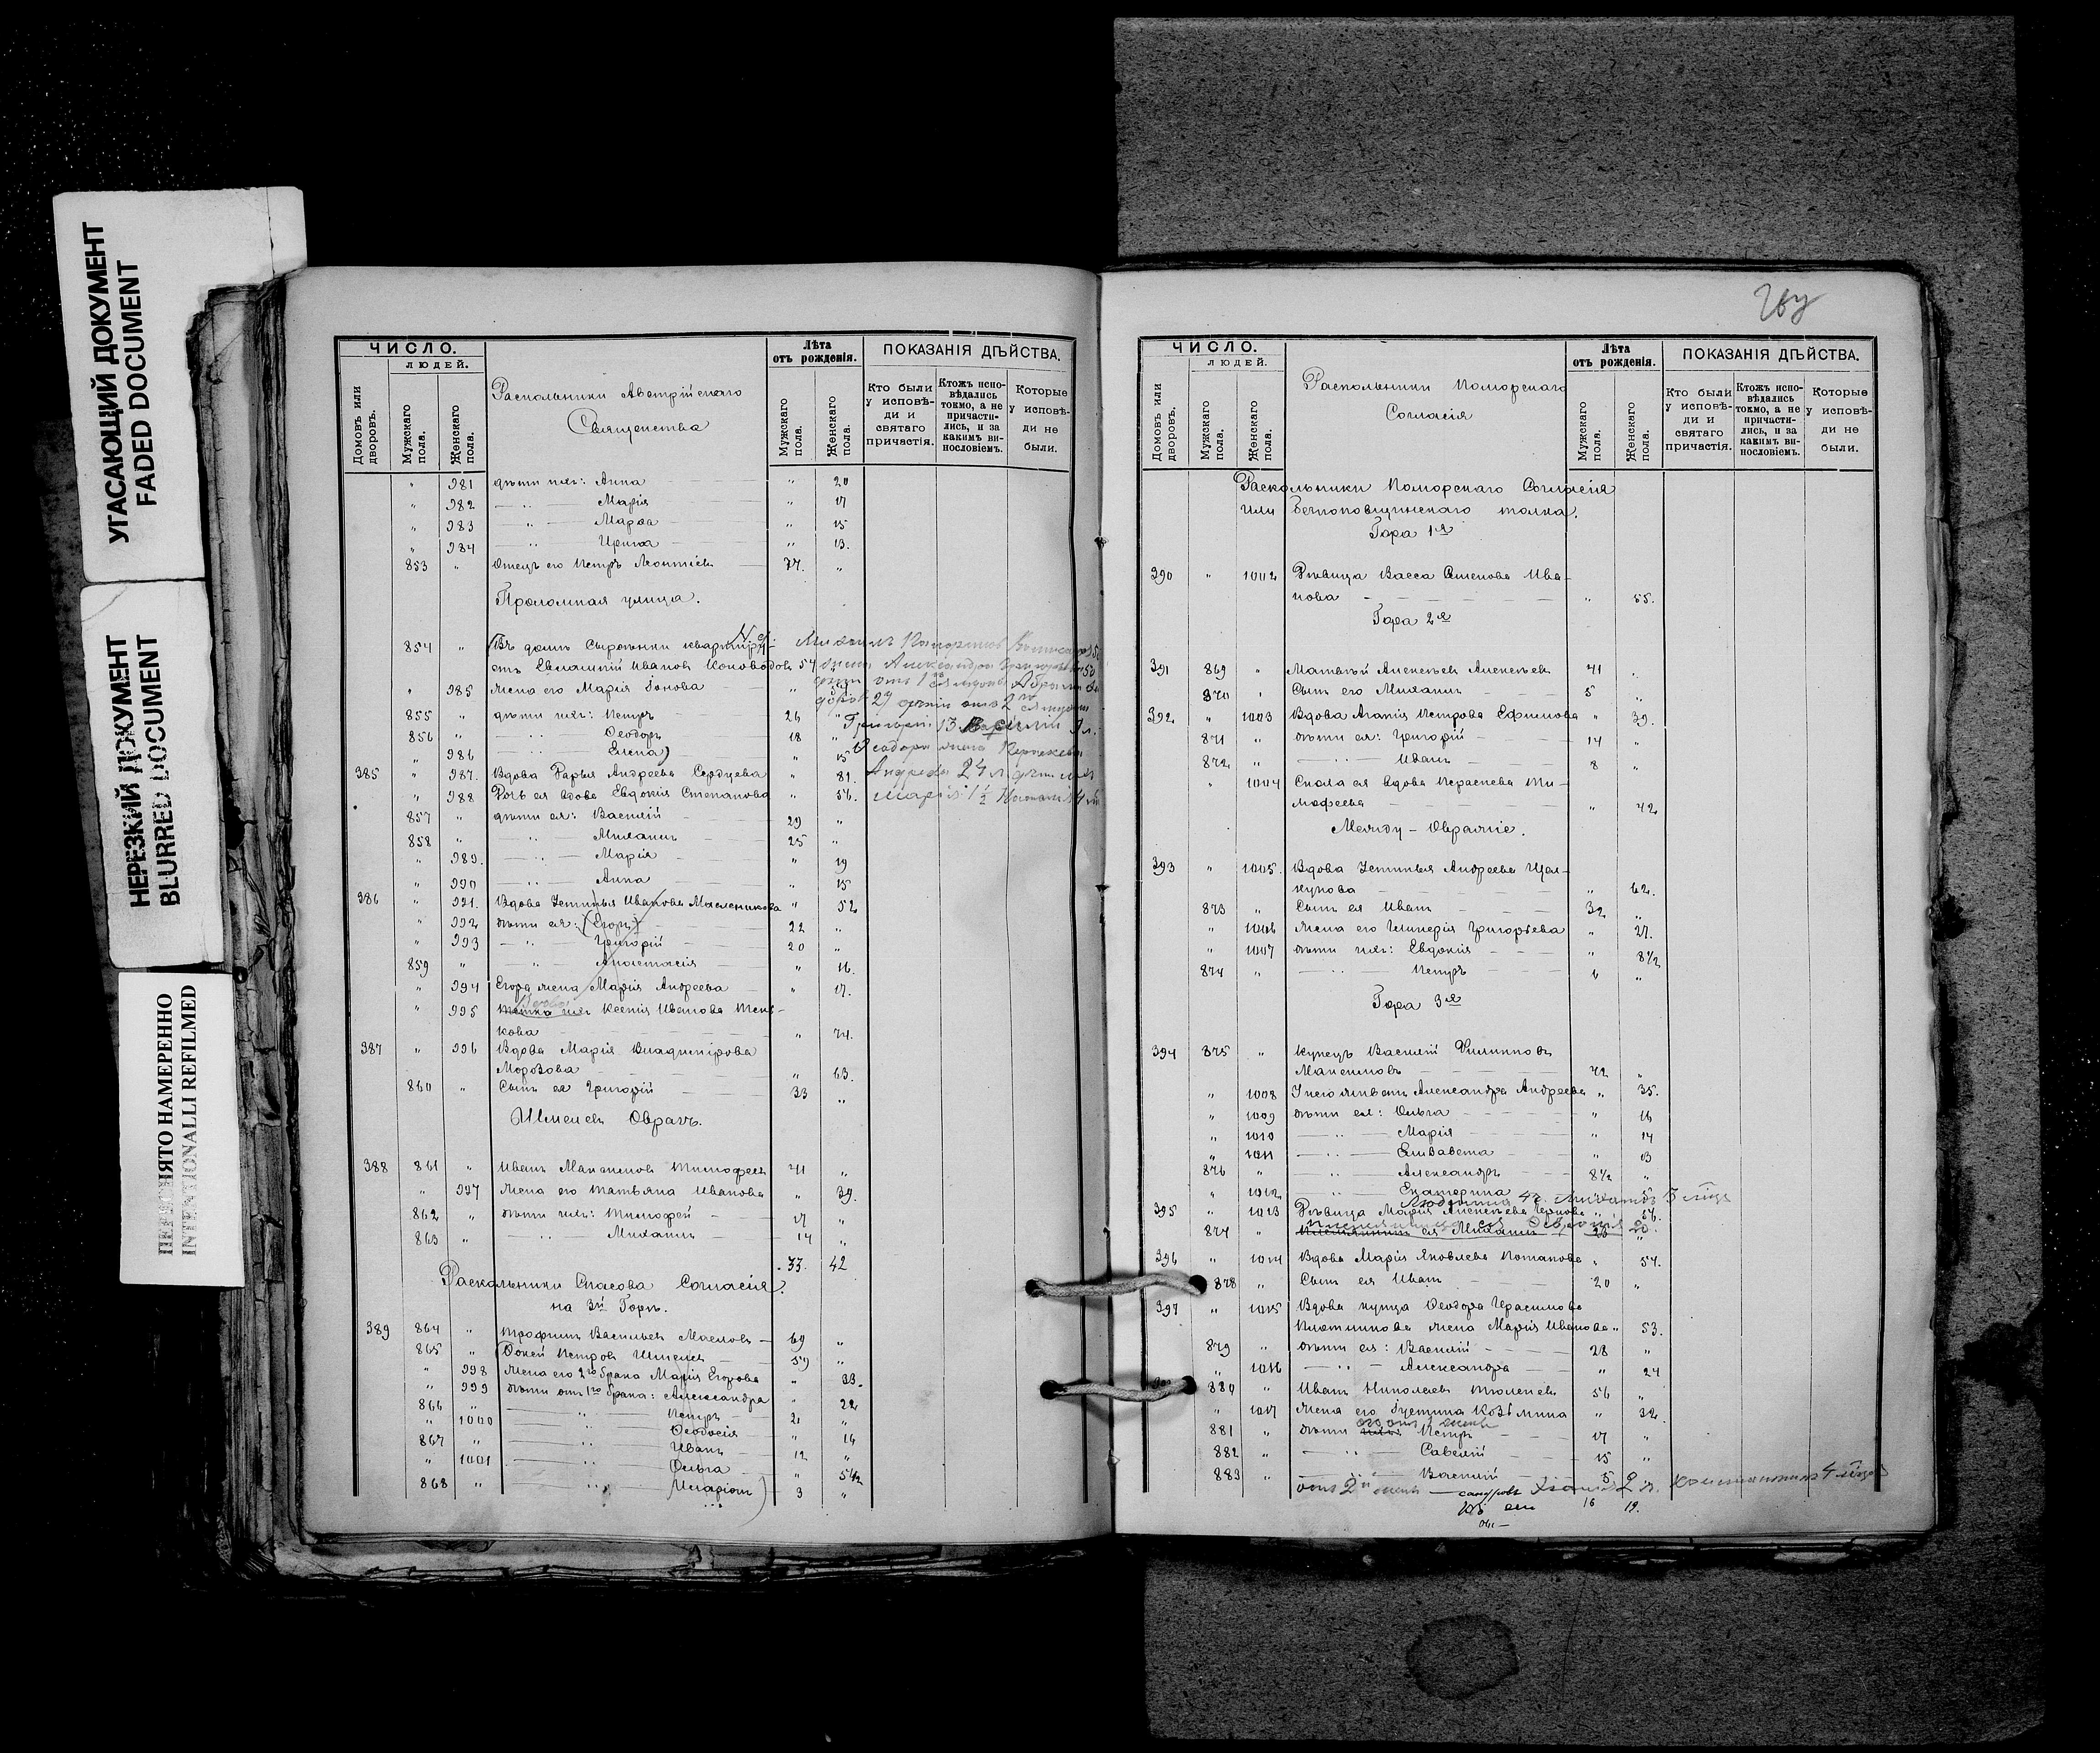 УГАСАЮЩИЙ ДОКУМЕНТ
FADED DOCUMENT
НЕРЕЗКИЙ ДОКУМЕНТ
BLURRED DOCUMENT
ПЕРЕСНЯТО НАМЕРЕННО
INTENTIONALLI REFILMED
ЧИСЛО.
ЛЮДЕЙ.
Домовъ или дворовъ.
Мужскаго пола.
Женскаго пола.
Раскольники Австрійскаго
Священства
Лѣта отъ рожденія.
Мужскаго пола.
Женскаго пола.
ПОКАЗАНІЯ ДѢЙСТВА.
Кто были у исповѣди и святаго причастія.
Ктожъ исповѣдались токмо, а не причастились, и за какимъ винословіемъ.
Которые у исповѣди не были.
" 981 дѣти ихъ: Анна " 20
" 982 " Марія " 17
" 983 " Марѳа " 15
" 984 " Ирина " 13.
853 " Отецъ его Петръ Леонтіевъ 77. "
Проломная улица.
854 " Въ домѣ
Иванов Коноводов 54
" 985 жена его Марія "
855 " дѣти ихъ: Петръ 26 "
856 " " Ѳеодоръ 18 "
" 986 " Елена) " 15
385 " 987. Вдова Дарья Андреева Сердцева " 81.
" 988 Дочь ея вдова Евдокія Степанова " 56.
857 " дѣти ея: Василій 29 "
858 " " Михаилъ 25 "
" 989. " Марія " 19
" 990 " Анна " 15
386 " 991. Вдова Устинья Иванова Масленикова " 52
" 992 дѣти ея: (Егоръ) 22 "
" 993 " Григорій 20 "
859 " " Анастасія " 16.
" 994 Егора жена Марія Андреева " 17.
" 995 тетка ихъ Ксенія Иванова
кова " 74.
387 " 996 Вдова Марія Владимірова
Морозова " 63.
860 " Сынъ ея Григорій 33 "
Шмелевъ Оврагъ.
388 861 " Иванъ Максимовъ Тимофеевъ 41 "
" 997 жена его Татьяна Иванова " 39.
862 " дѣти ихъ: Тимофей 17 "
863 " " Михаилъ 14 "
33. 42
Раскольники Спасова Согласія.
на 3й Горѣ.
389 864 " Трофимъ Васильевъ Масловъ 69 "
865 " Фокей Петровъ Шмелевъ 59 "
" 998 жена его 2го брака Марія Егорова " 33.
" 999 дѣти отъ 1го брака: Александра " 22
866 " " Петръ 21 "
" 1000 " Ѳеодосія " 16
867 " " Иванъ 12 "
" 1001 " Ольга " 5½
868 " " Иларіонъ) 3 "
ЧИСЛО.
ЛЮДЕЙ.
Домовъ или дворовъ.
Мужскаго пола.
Женскаго пола.
Раскольники Поморскаго
Согласія
Лѣта отъ рожденія.
Мужскаго пола.
Женскаго пола.
ПОКАЗАНІЯ ДѢЙСТВА.
Кто были у исповѣди и святаго причастія.
Ктожъ исповѣдались токмо, а не причастились, и за какимъ винословіемъ.
Которые у исповѣди не были.
Раскольники Поморскаго Согласія
или Безпоповщинскаго толка.
Гора 1я
390 " 1002 Дѣвица Васса Степанова Ива-
нова " 55.
Гора 2я
391 869 " Матвѣй Алексѣевъ Алексѣевъ 41 "
870 " Сынъ его Михаилъ 5 "
392 " 1003 Вдова Агапія Петрова Ефимова " 39.
871 " дѣти ея: Григорій 14 "
872 " " Иванъ 8 "
" 1004 Сноха ея вдова Пераскева Ти-
мофеева " 42
Между-Овражіе.
393 " 1005. Вдова Устинья Андреева Щел-
кунова " 62.
873 " Сынъ ея Иванъ 32 "
" 1006 жена его Гликерія Григорьева " 27.
" 1007 дѣти ихъ: Евдокія " 8½
874 " " Петръ 6 "
Гора 3я
394 875 " купецъ Василій Филипповъ
Максимовъ 42 "
" 1008 У него живетъ Александра Андреева " 35.
" 1009 дѣти ея: Ольга " 16
" 1010 " Марія " 14
" 1011 " Елизавета " 13
876 " " Александръ 8½ "
" 1012 " Екатерина " 5
395 " 1013 Дѣвица Марія Алексѣева " 56.
877 " ея Михаилъ 26 "
396 " 1014 Вдова Марія Яковлева Потапова " 54.
878 " Сынъ ея Иванъ 20 "
397 " 1015 Вдова купца Ѳеодора Герасимова
Плотникова жена Марія Иванова " 53.
879 " дѣти ея: Василій 28 "
" 1016 " Александра " 24
880 " Иванъ Николаевъ Тюленевъ 56 "
" 1017 жена его Іустина Козьмина " 32.
881 " дѣти Петръ 17 "
882 " " Савелій 15 "
883 " " Василій 5 "
16 19.